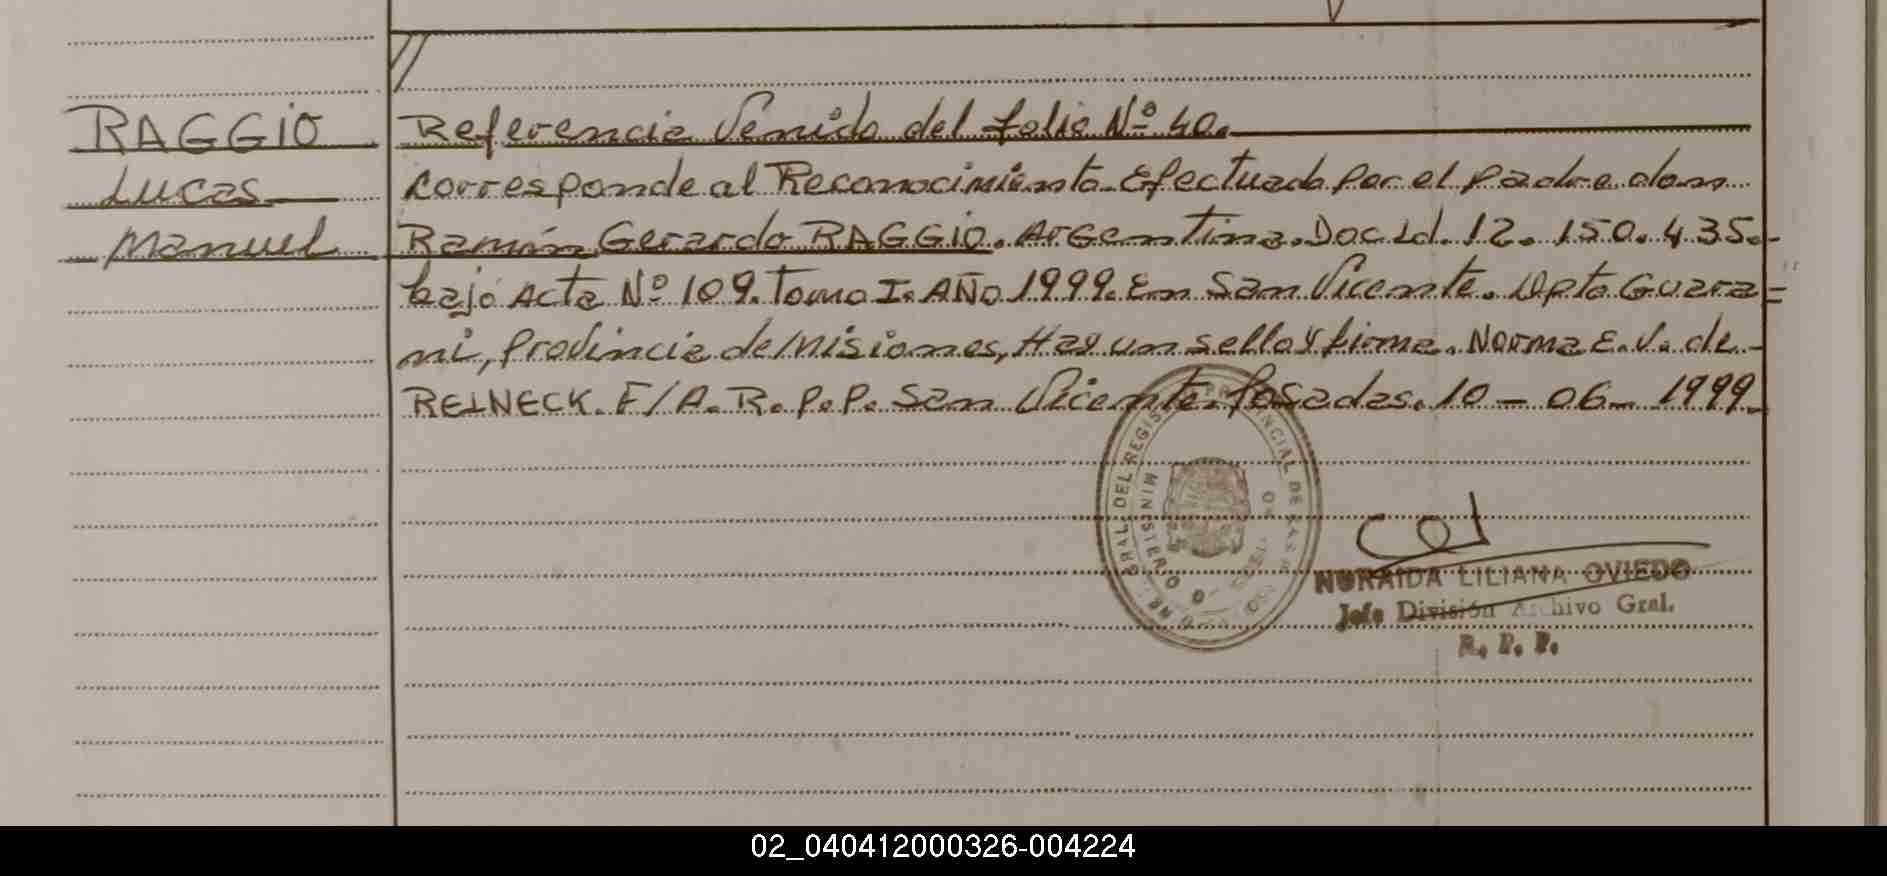 RAGGIO
Lucas
Manuel
Referencia Venida del folio Nº 40.
corresponde al Reconocimiento Efectuado por el padre don
Ramón Gerardo RAGGIO. Argentina. Doc. Id. 12.150.435.-
bajo Acta Nº 109. Tomo I. AÑO 1999. En San Vicente. Dpto Guara=
ni, Provincia de Misiones, Hay un sello y firma. Norma E. V. de -
REINECK. F/A. R. P. P. San Vicente. Posadas. 10 - 06 - 1999.
GRAL. DEL REGIS PROVINCIAL DE LAS P
MINISTERIO D
NORAIDA LILIANA OVIEDO
Jefe División Archivo Gral.
R. P. P.
02_040412000326-004224